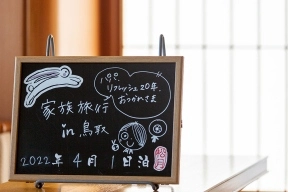 パパ、
リフレッシュ20年、
おつかれさま
家族旅行
in 鳥取
2022年 4月 1日泊